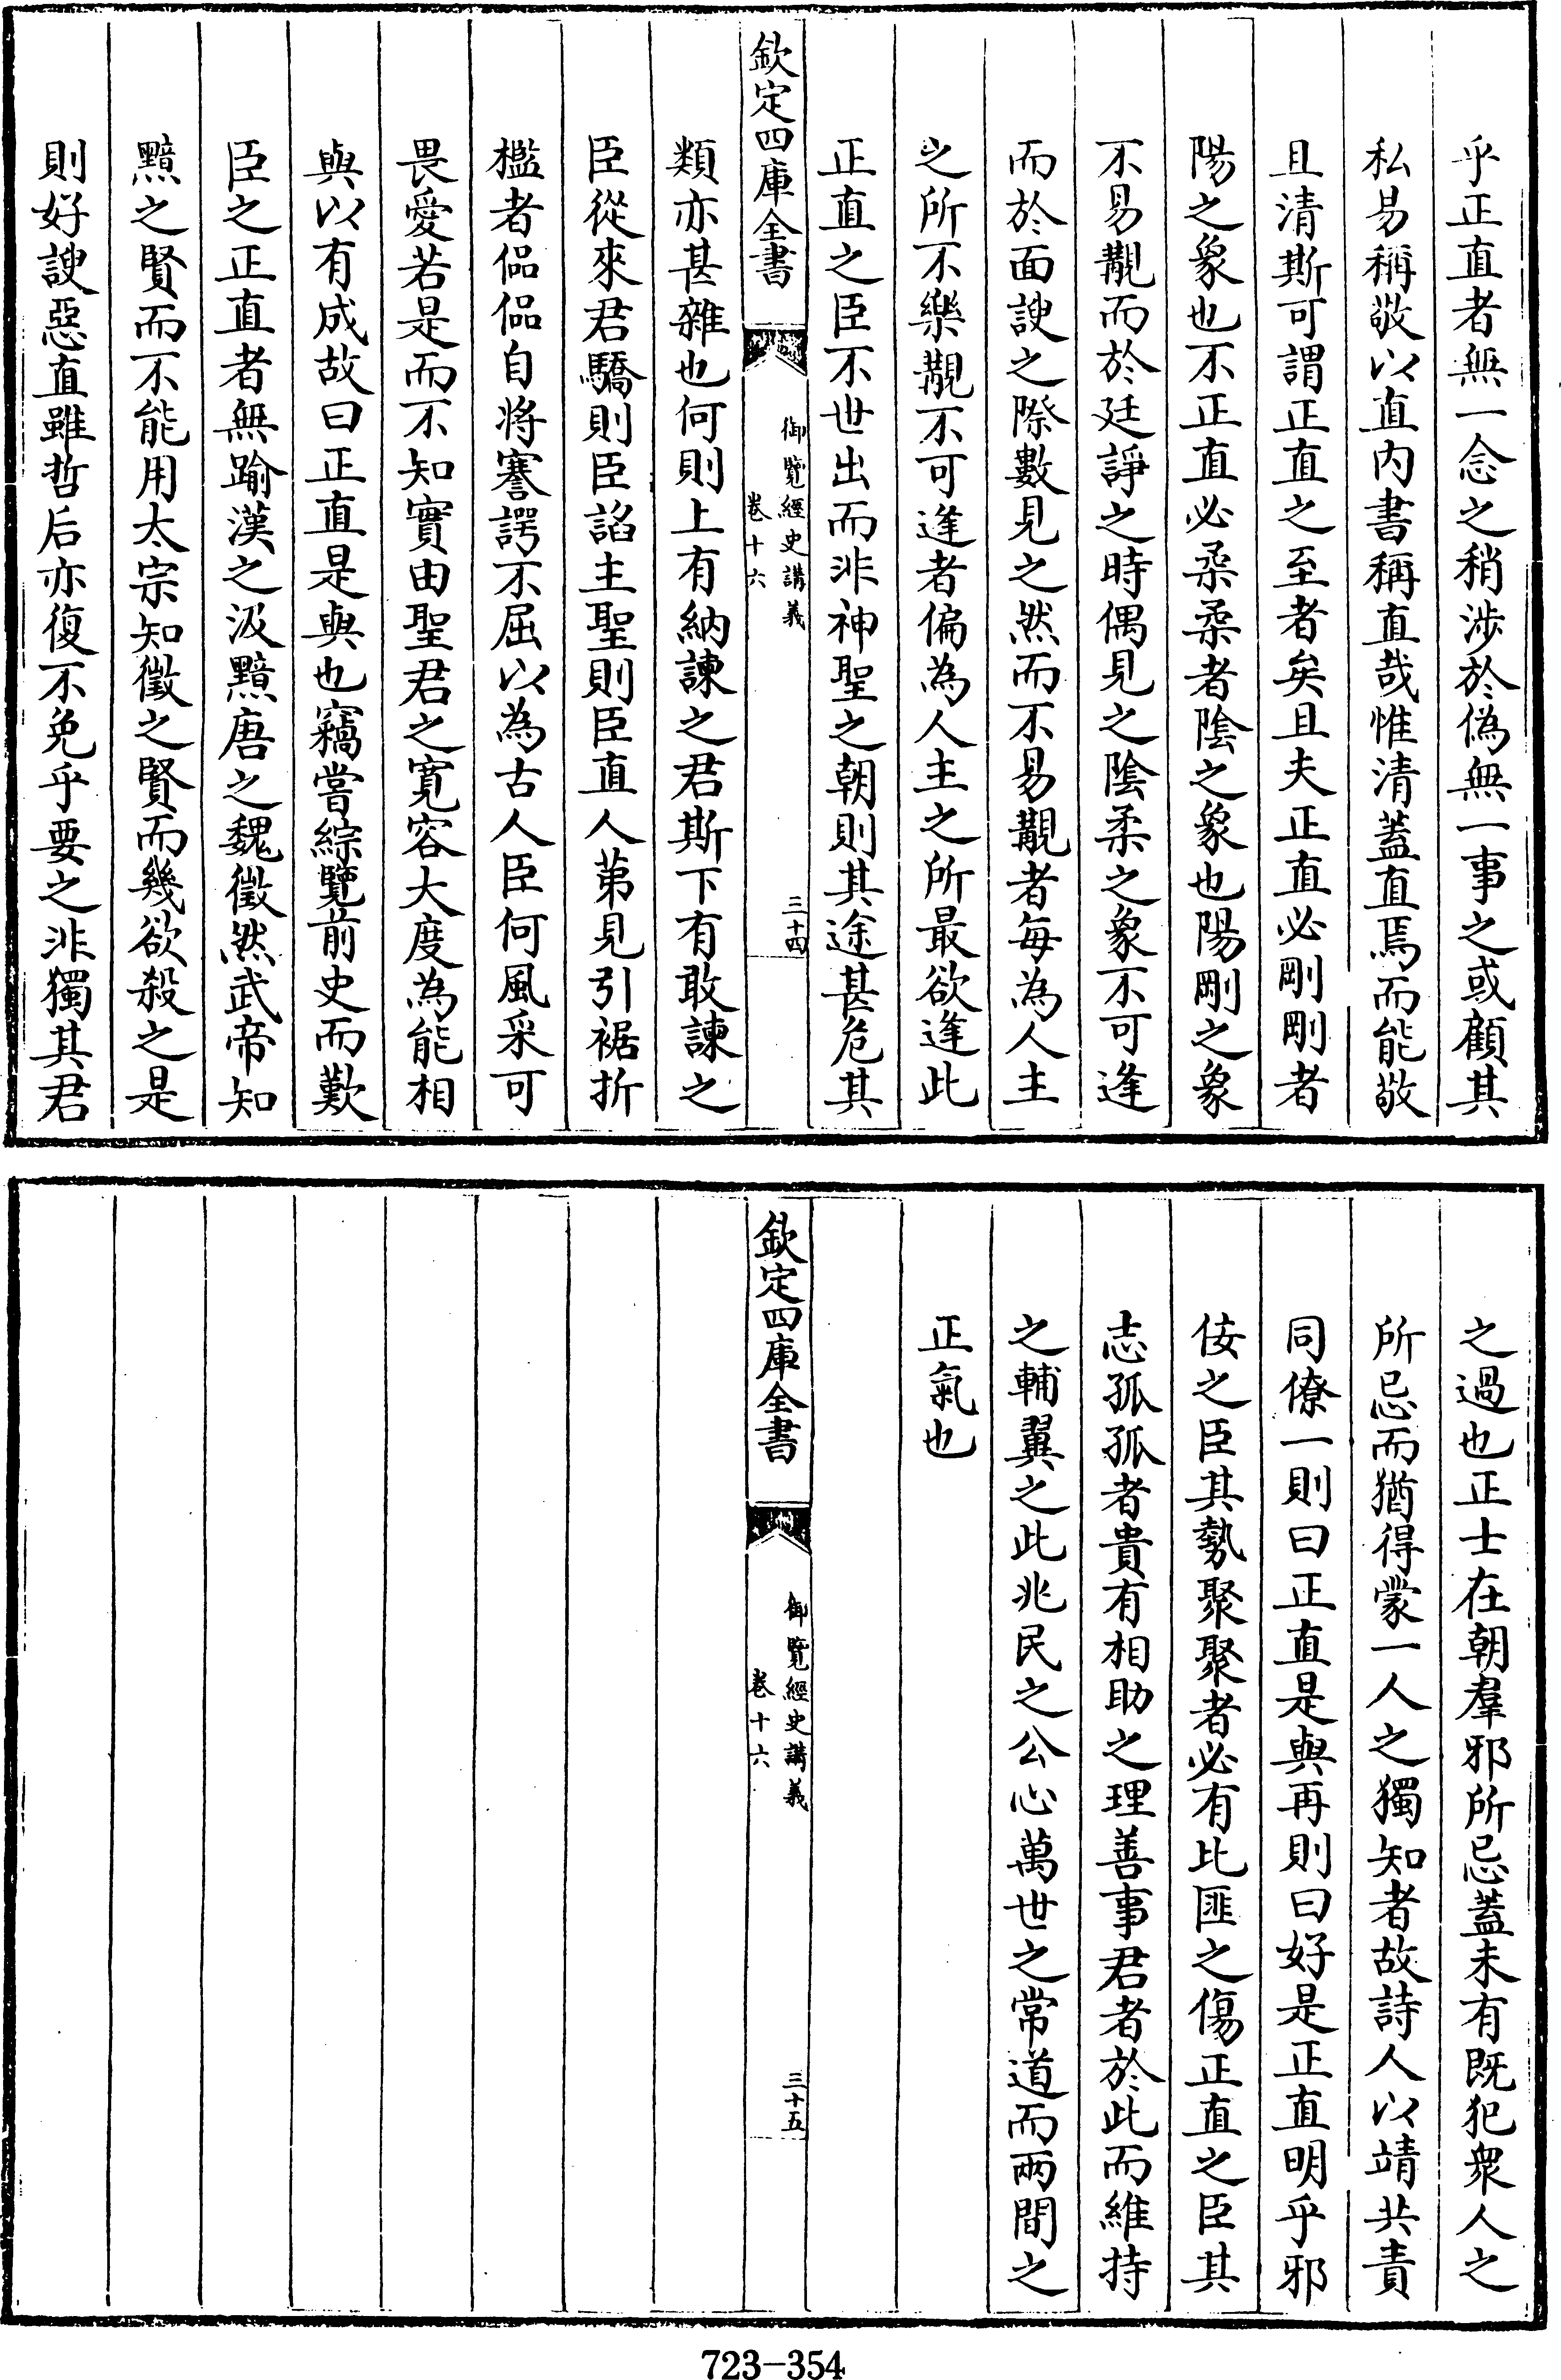 乎正直者無一念之稍涉於偽無一事之或顧其
私易稱敬以直內書稱直哉惟清蓋直焉而能敬
且清斯可謂正直之至者矣且夫正直必剛剛者
陽之象也不正直必柔柔者陰之象也陽剛之象
不易覯而於廷諍之時偶見之陰柔之象不可逢
而於面諛之際數見之然而不易覯者每為人主
之所不樂覯不可逢者偏為人主之所最欲逢此
正直之臣不世出而非神聖之朝則其途甚危其
欽定四庫全書
御覽經史講義
卷十六
三十四
類亦甚雜也何則上有納諫之君斯下有敢諫之
臣從來君驕則臣諂主聖則臣直人苐見引裾折
檻者侃侃自將謇諤不屈以為古人臣何風采可
畏愛若是而不知實由聖君之寛容大度為能相
與以有成故曰正直是與也竊嘗綜覽前史而歎
臣之正直者無踰漢之汲黯唐之魏徵然武帝知
黯之賢而不能用太宗知徵之賢而幾欲殺之是
則好諛惡直雖哲后亦復不免乎要之非獨其君
之過也正士在朝羣邪所忌蓋未有既犯衆人之
所忌而猶得蒙一人之獨知者故詩人以靖共責
同僚一則曰正直是與再則曰好是正直明乎邪
佞之臣其勢聚聚者必有比匪之傷正直之臣其
志孤孤者貴有相助之理善事君者於此而維持
之輔翼之此兆民之公心萬世之常道而兩間之
正氣也
欽定四庫全書
御覽經史講義
卷十六
三十五
723-354